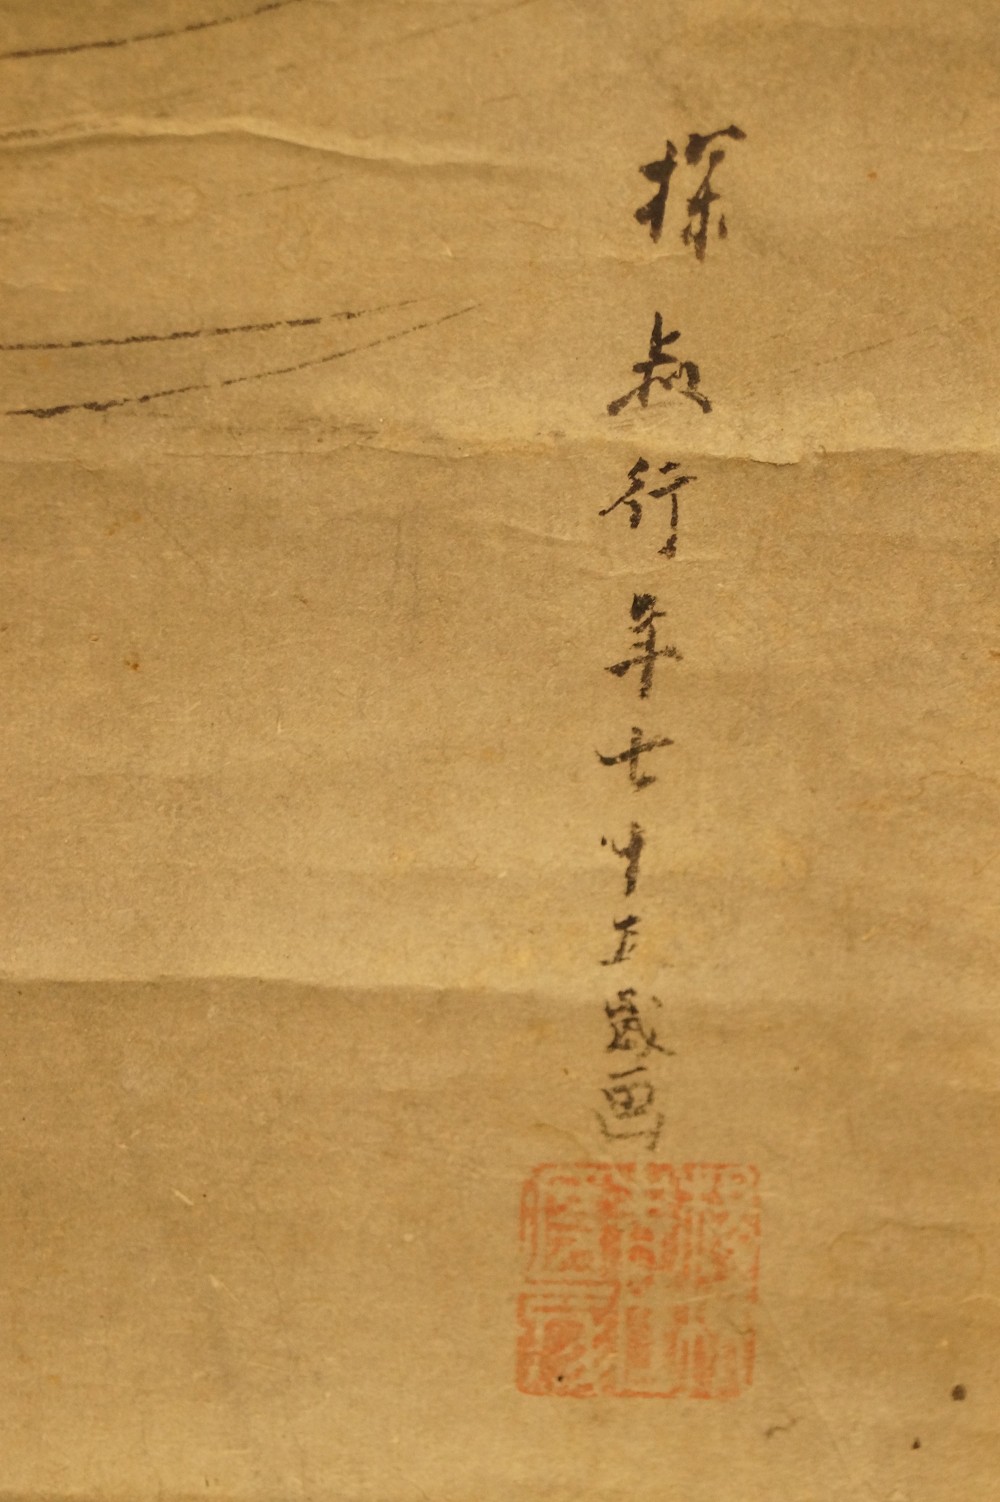 探叔行年七十五歳画